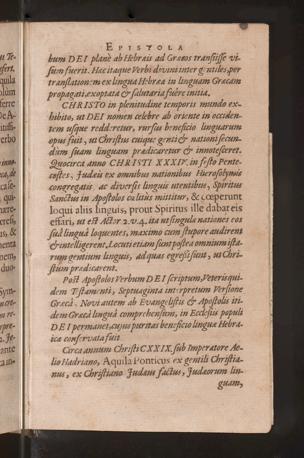 EPISTOLA
bum DEI planè ab Hebræis ad Græcos transiisse vi-
sum fuerit. Hæc itaque Verbi divini inter gentiles, per
translationem ex lingua Hebræa in linguam Græcam
propagati, exoptata & salutaria fuêre initia.
CHRISTO in plenitudine temporis mundo ex-
hibito, ut DEI nomen celebre ab oriente in occiden-
tem usque redderetur, rursus beneficio linguarum
opus fuit, ut Christus cuique genti & nationi secun-
dum suam linguam prædicaretur & innotesceret.
Quocirca anno CHRISTI XXXIV. in festo Pente-
costes, Judæis ex omnibus nationibus Hierosolymis
congregatis ac diversis linguis utentibus, Spiritus
Sanctus in Apostolos cælitus mittitur, & cœperunt
loqui aliis linguis, prout Spiritus ille dabat eis
effari, ut est Actor. 2. v. 4. ita ut singula nationes eos
suâ linguâ loquentes, maximo cum stupore audirent
& intelligerent. Locuti etiam sunt postea omnium ista-
rum gentium linguis, ad quas egressi sunt, ut Chri-
stum prædicarent.
Post Apostolos Verbum DEI scriptum, Veteris qui-
dem Testamenti, Septuaginta interpretum Versione
Græcâ. Novi autem ab Evangelistis & Apostolis iti-
dem Græcâ linguâ comprehensum, in Ecclesia populi
DEI permanet, cujus puritas beneficio linguæ Hebra-
icæ conservata fuit.
Circa annum Christi CXXIX. sub Imperatore Æ-
lio Hadriano, Aquila Ponticus ex gentili Christia-
nus, ex Christiano Judæus factus, Judæorum lin-
guam,